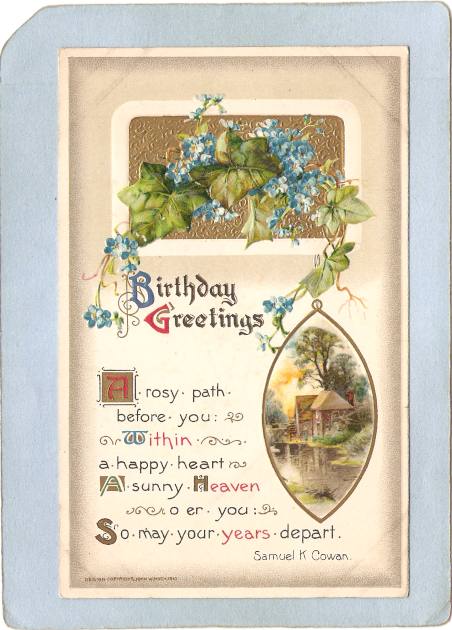 Birthday
Greetings
A·rosy·path·
before·you:
Within
a·happy·heart
A·sunny·Heaven
o er·you:
So·may·your·years·depart.
Samuel K Cowan.
DESIGN COPYRIGHT, JOHN WINSCH, 1910